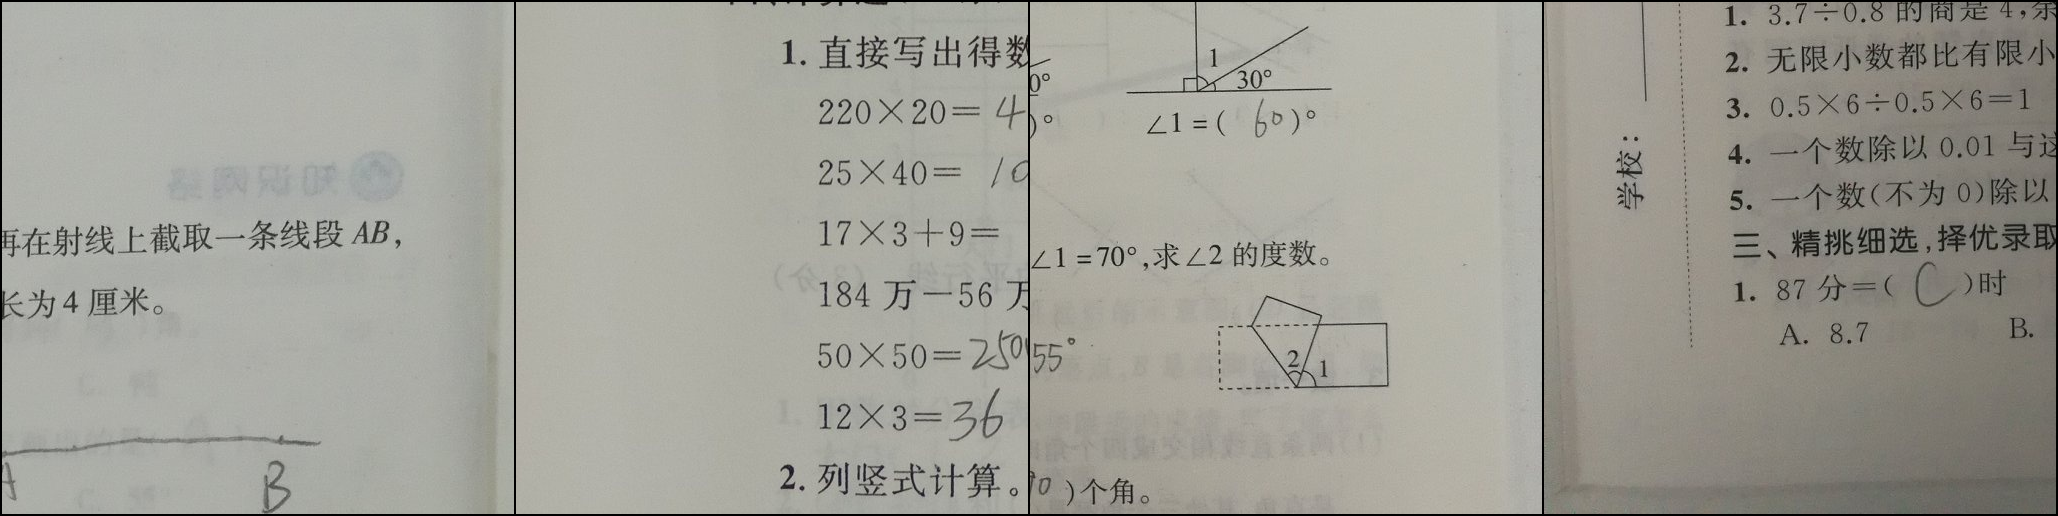 再在射线上截取一条线段 AB，
长为 4 厘米。
A
B
1. 直接写出得数
220×20=4
25×40=10
17×3+9=
184 万－56 万
50×50=250
12×3=36
2. 列竖式计算。
0°
)°
1
30°
∠1=( 60 )°
∠1=70°,求∠2 的度数。
55°
2
1
10 )个角。
学校：
1. 3.7÷0.8 的商是 4，余
2. 无限小数都比有限小
3. 0.5×6÷0.5×6=1
4. 一个数除以 0.01 与这
5. 一个数(不为 0)除以
三、精挑细选，择优录取
1. 87 分=( C )时
A. 8.7
B.